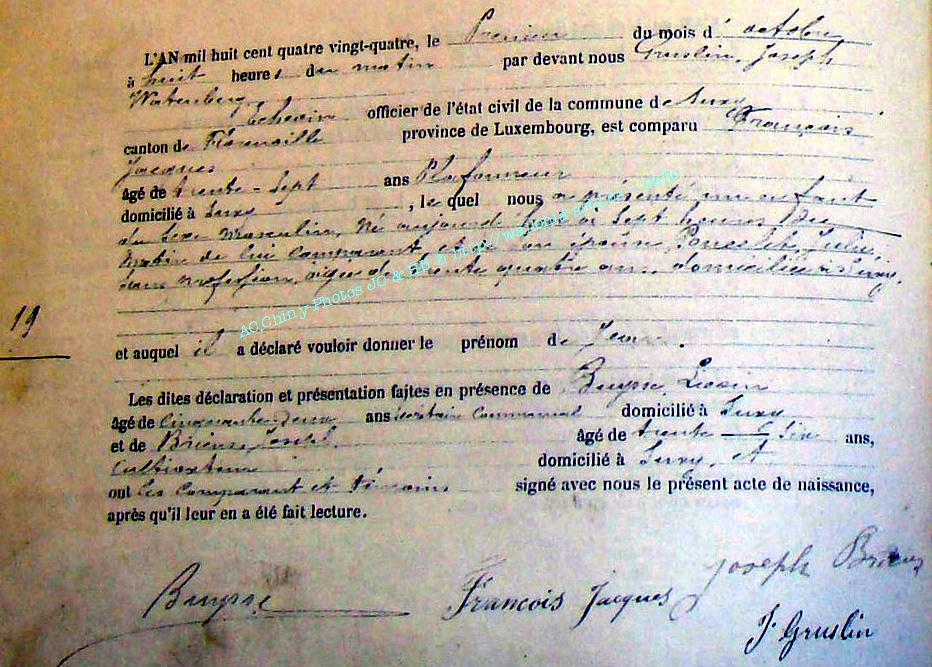 L'AN mil huit cent quatre vingt-quatre, le Premier du mois d'octobre
à huit heures du matin par devant nous Gruslin, Joseph
Watenberg, Echevin officier de l'état civil de la commune de Suxy
canton de Florenville province de Luxembourg, est comparu François
Jacques
âgé de trente-sept ans Plafonneur
domicilié à Suxy, lequel nous a présenté un enfant
du sexe masculin, né aujourd'hui à sept heures du
matin de lui comparant et de son épouse Julie
sans profession, agée de trente quatre ans, domiciliée à Suxy,
19
et auquel il a déclaré vouloir donner le prénom de Jean.
Les dites déclaration et présentation faites en présence de Buysse
âgé de cinquante deux ans secrétaire communal domicilié à Suxy
et de Brieus Joseph âgé de trente - six ans,
cultivateur domicilié à Suxy, et
ont les comparant et témoins signé avec nous le présent acte de naissance,
après qu'il leur en a été fait lecture.
Buysse François Jacques Joseph Brieus
J. Gruslin
AC Chiny Photos JC & BB © http://